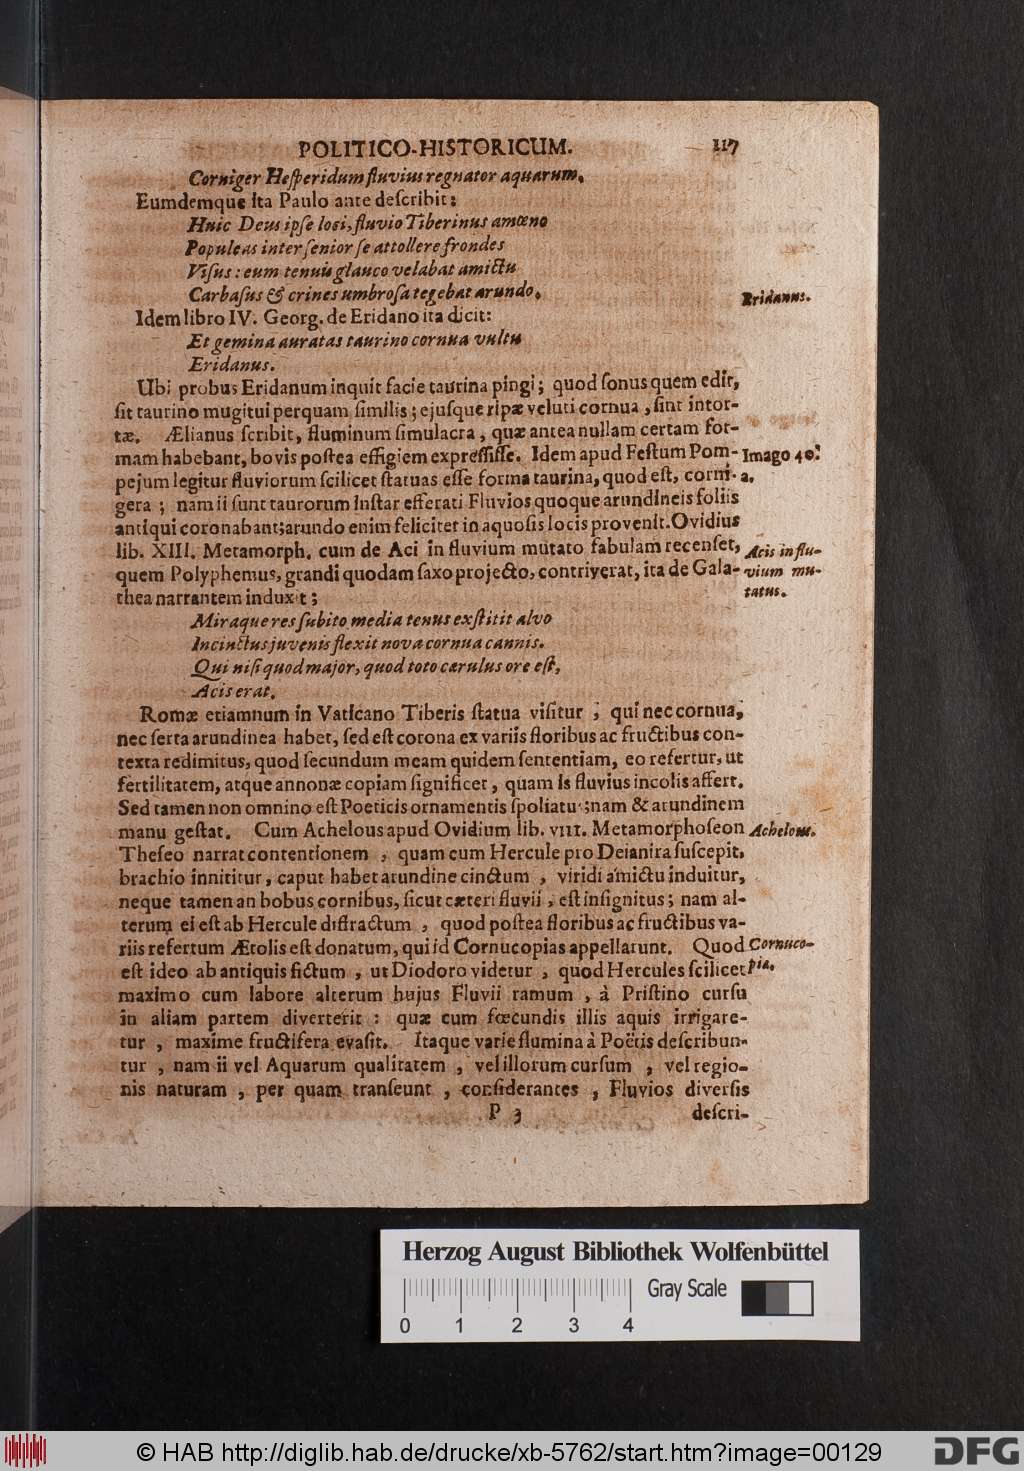 POLITICO-HISTORICUM. 117
Corniger Heſperidum fluvius regnator aquarum.
Eumdemque ita Paulo ante deſcribit:
Huic Deus ipſe loci, fluvio Tiberinus amœno
Populeas inter ſenior ſe attollere frondes
Viſus: eum tenuis glauco velabat amictu
Carbaſus & crines umbroſa tegebat arundo.
Eridanus.
Idem libro IV. Georg. de Eridano ita dicit:
Et gemina auratas taurino cornua vultu
Eridanus.
Ubi probus Eridanum inquit facie taurina pingi; quod ſonus quem edit,
ſit taurino mugitui perquam ſimilis; ejuſque ripæ veluti cornua, ſint intor-
tæ. Ælianus ſcribit, fluminum ſimulacra, quæ antea nullam certam for-
mam habebant, bovis poſtea effigiem expreſſiſſe. Idem apud Feſtum Pom-
Imago 40.
pejum legitur fluviorum ſcilicet ſtatuas eſſe forma taurina, quod eſt, corni-
a.
gera; nam ii ſunt taurorum inſtar efferati Fluvios quoque arundineis foliis
antiqui coronabant; arundo enim feliciter in aquoſis locis provenit. Ovidius
lib. XIII. Metamorph. cum de Aci in fluvium mutato fabulam recenſet,
Acis in flu-
quem Polyphemus, grandi quodam ſaxo projecto, contriverat, ita de Gala-
vium mu-
thea narrantem induxit;
tatus.
Miraque res ſubito media tenus exſtitit alvo
Incinctus juvenis flexit nova cornua cannis.
Qui niſi quod major, quod toto cærulus ore eſt,
Acis erat.
Romæ etiamnum in Vaticano Tiberis ſtatua viſitur; qui nec cornua,
nec ſerta arundinea habet, ſed eſt corona ex variis floribus ac fructibus con-
texta redimitus, quod ſecundum meam quidem ſententiam, eo refertur, ut
fertilitatem, atque annonæ copiam ſignificet, quam is fluvius incolis affert.
Sed tamen non omnino eſt Poeticis ornamentis ſpoliatus; nam & arundinem
manu geſtat. Cum Achelous apud Ovidium lib. VIII. Metamorphoſeon
Achelous.
Theſeo narrat contentionem, quam cum Hercule pro Deianira ſuſcepit,
brachio innititur, caput habet arundine cinctum, viridi amictu induitur,
neque tamen an bobus cornibus, ſicut cæteri fluvii, eſt inſignitus; nam al-
terum ei eſt ab Hercule diffractum, quod poſtea floribus ac fructibus va-
riis refertum Ætolis eſt donatum, qui id Cornucopias appellarunt. Quod
Cornuco-
eſt ideo ab antiquis fictum, ut Diodoro videtur, quod Hercules ſcilicet
pia.
maximo cum labore alterum hujus Fluvii ramum, à Priſtino curſu
in aliam partem diverterit: quæ cum fœcundis illis aquis irrigare-
tur, maxime fructifera evaſit. Itaque varie flumina à Poëtis deſcribun-
tur, nam ii vel Aquarum qualitatem, vel illorum curſum, vel regio-
nis naturam, per quam tranſeunt, conſiderantes, Fluvios diverſis
P 3 deſcri-
Herzog August Bibliothek Wolfenbüttel
Gray Scale
0 1 2 3 4
© HAB http://diglib.hab.de/drucke/xb-5762/start.htm?image=00129
DFG